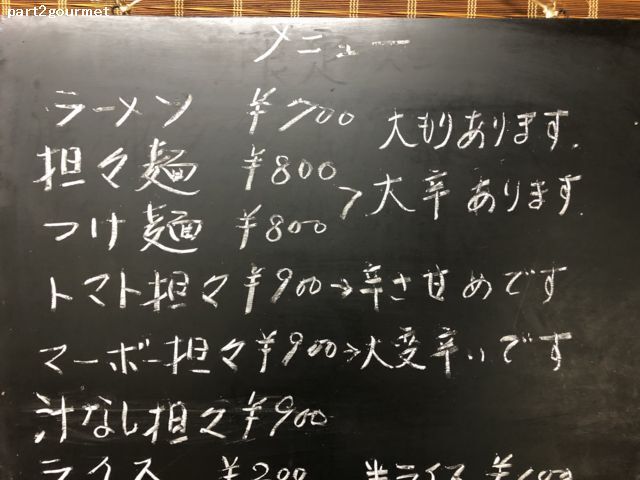 part2gourmet
メニュー
ラーメン ¥700 大もりあります.
担々麺 ¥800
>大辛あります.
つけ麺 ¥800
トマト担々¥900→辛さ甘めです
マーボー担々¥900→大変辛いです
汁なし担々¥900
ライス ¥200 半ライス ¥100